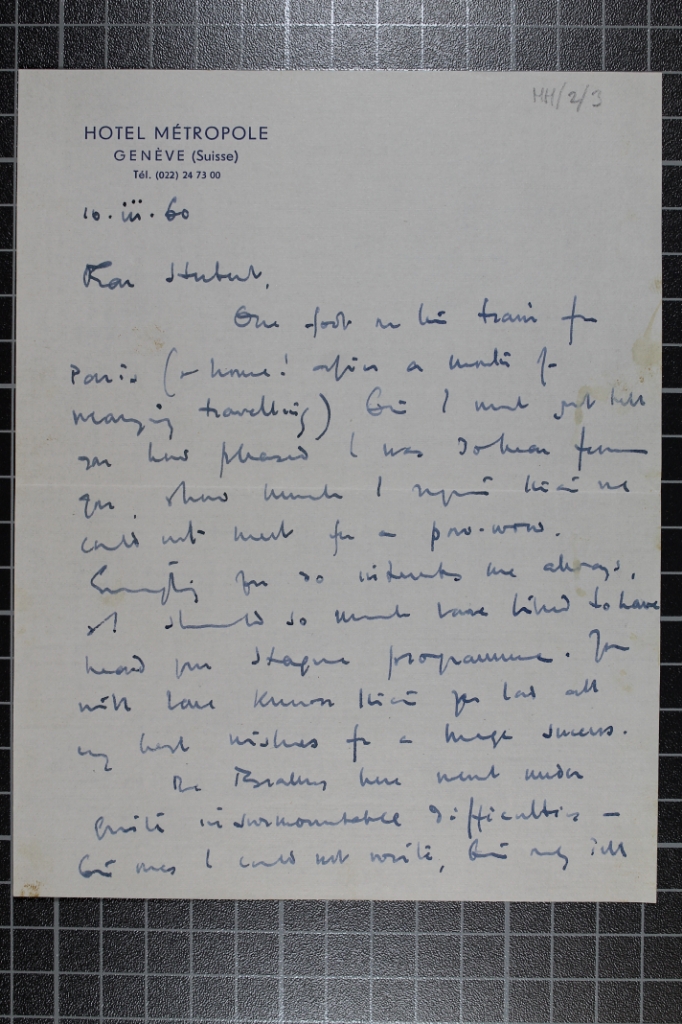 MH/2/3
HOTEL MÉTROPOLE
GENÈVE (Suisse)
Tél. (022) 24 73 00
10.iii.60
Dear Hubert,
One foot in the train for
Paris (& home! after a month of
travelling) But I must just tell
you how pleased I was to hear from
you, & how much I regret that we
could not meet for a pow-wow.
Everything you do interests me always,
& I should so much have liked to have
heard your Hague programme. You
will have known that you had all
my best wishes for a huge success.
The Brahms here went under
quite insurmountable difficulties –
but ones I could not write, but only tell